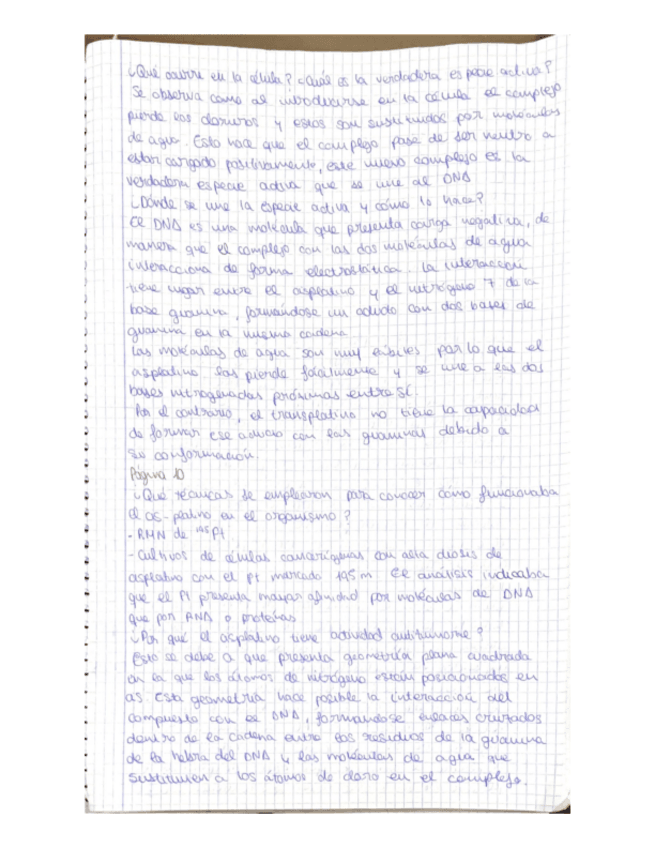 ¿Qué ocurre en la célula? ¿Cuál es la verdadera especie activa?
Se observa como al introducirse en la célula el complejo
pierde los cloruros y estos son sustituidos por moléculas
de agua. Esto hace que el complejo pase de ser neutro a
estar cargado positivamente, este nuevo complejo es la
verdadera especie activa que se une al DNA
¿Dónde se une la especie activa y cómo lo hace?
El DNA es una molécula que presenta carga negativa, de
manera que el complejo con las dos moléculas de agua
interacciona de forma electrostática. La interacción
tiene lugar entre el cisplatino y el nitrógeno 7 de la
base guanina, formándose un aducto con dos bases de
guanina en la misma cadena
Las moléculas de agua son muy lábiles por lo que el
cisplatino las pierde fácilmente y se une a las dos
bases nitrogenadas próximas entre sí.
Por el contrario, el transplatino no tiene la capacidad
de formar ese aducto con las guaninas debido a
su conformación.
Página 10
¿Qué técnicas se emplearon para conocer cómo funcionaba
el cis-platino en el organismo?
- RMN de ¹⁹⁵Pt
- Cultivos de células cancerígenas con alta diosis de
cisplatino con el Pt marcado 195m. El análisis indicaba
que el Pt presenta mayor afinidad por moléculas de DNA
que por RNA o proteínas
¿Por qué el cisplatino tiene actividad antitumoral?
Esto se debe a que presenta geometría plana cuadrada
en la que los átomos de nitrógeno están posicionados en
cis. Esta geometría hace posible la interacción del
compuesto con el DNA, formándose enlaces cruzados
dentro de la cadena entre los residuos de la guanina
de la hebra del DNA y las moléculas de agua que
sustituyen a los átomos de cloro en el complejo.